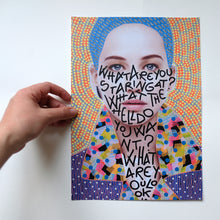 WHAT ARE YOU
STARING AT?
WHAT THE
HELL DO
YOU WA
NT!?
WHAT
ARE Y
OU LO
OK